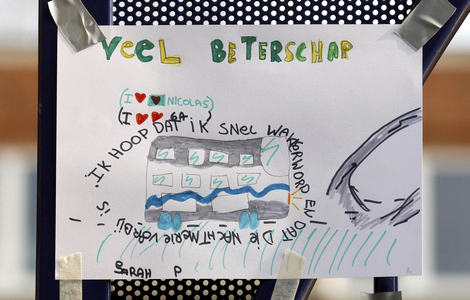 VEEL BETERSCHAP
(I ❤ NICOLAS)
(I ❤
IK HOOP DAT IK SNEL WAKKERWORD EN
DAT DIE NACHTMERIE VORBIJ
IS.
SARAH P